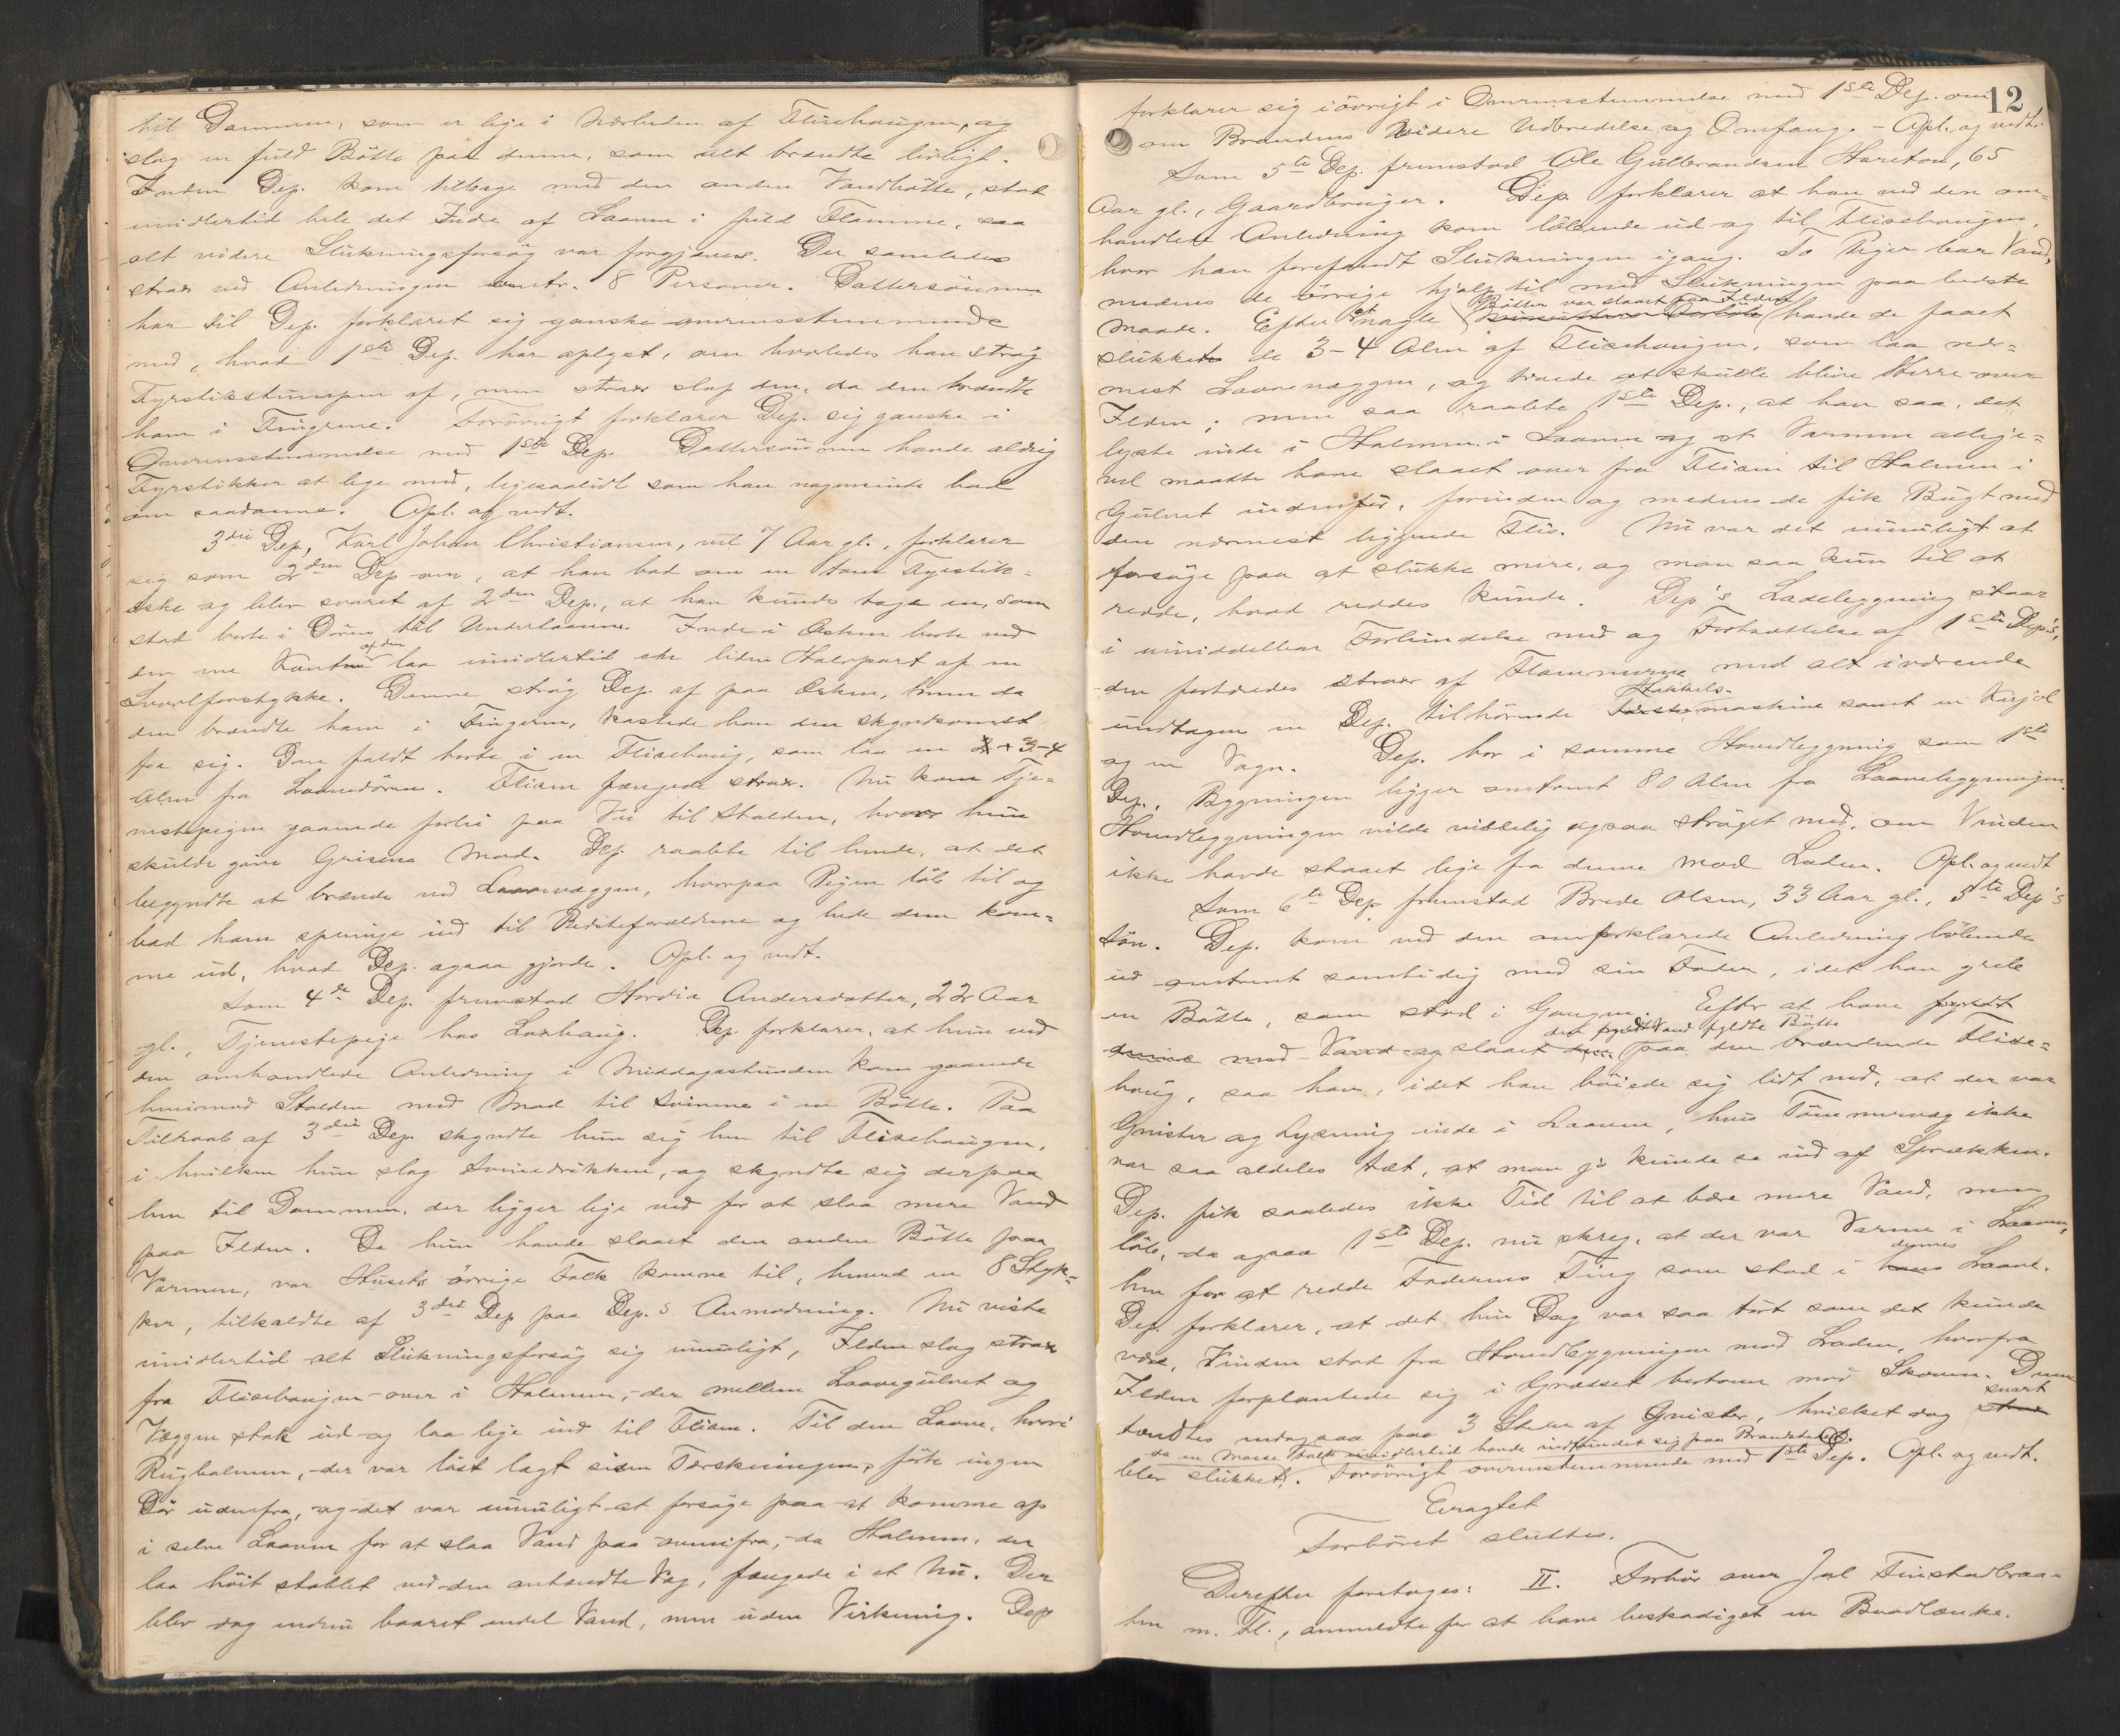 til Dammen, som er lige i Nærheden af Flisehaugen, og
slog en fuld Bötte paa denne, som alt brændte livligt.
Inden Dep. kom tilbage med den anden Vandbötte, stod
imidlertid hele det Indre af Laaven i fuld Flamme, saa
alt videre Slukningsforsög var forgjæves. Der samledes
strax ved Anledningen omtr. 8 Personer. Dattersönnen
har til Dep. forklaret sig ganske overensstemmende
med, hvad 1ste Dep. har oplyst, om hvorledes han strög
Fyrstikstumpen af, men strax slap den, da den brændte
ham i Fingrene. Forövrigt forklarer Dep. sig ganske i
Overensstemmelse med 1ste Dep. Dattersönnen havde aldrig
Fyrstikker at lege med, ligesaalidt som han nogensinde bad
om saadanne. Opl. og vedt.
3die Dep, Karl Johan Christiansen, vel 7 Aar gl., forklarer
sig som 2den Dep om, at han bad om en tom Fyrstik-
æske og blev svaret af 2den Dep., at han kunde tage en, som
stod borte i Dören til Underlaaven. Inde i Æsken borte ved
den ene Kanten af den laa imidlertid en liden Halvpart af en
Svovlforstykke. Denne strög Dep. af paa Æsken, men da
den brændte ham i Fingeren, kastede han den skyndsomst
fra sig. Den faldt borte i en Flisehaug, som laa en 3-4
Alen fra Laavedören. Flisen fængede strax. Nu kom Tje-
nestepigen gaaende forbi paa Vei til Stalden, hvor hun
skulde give Grisene Mad. Dep. raabte til hende, at det
begyndte at brænde ved Laavevæggen, hvorpaa Pigen löb til og
bad ham springe ind til Bedsteforældrene og bede dem kom-
me ud, hvad Dep. ogsaa gjorde. Opl. og vedt.
Som 4de Dep. fremstod Andersdatter, 22 Aar
gl., Tjenestepige hos Loxhaug. Dep. forklarer, at hun ved
den omhandlede Anledning i Middagsstunden kom gaaende
henimod Stalden med Mad til Svinene i en Bötte. Paa
Tilraab af 3die Dep. skyndte hun sig hen til Flisehaugen,
i hvilken hun slog Svinedrikken, og skyndte sig derpaa
hen til Dammen, der ligger lige ved for at slaa mere Vand
paa Ilden. Da hun havde slaaet den anden Bötte paa
Varmen, var Husets övrige Folk komne til, henved en 8 Styk-
ker, tilkaldte af 3die Dep paa Dep.s Anmodning. Nu viste
imidlertid alt Slukningsforsög sig umuligt, Ilden slog strax
fra Flisehaugen over i Halmen, der mellem Laavegulvet og
Væggen stak ud og laa lige ind til Flisen. Til den Laave, hvori
Rughalmen, der var löst lagt siden Tærskningen, förte ingen
Dör udenfra, og det var umuligt at forsöge paa at komme op
i selve Laaven for at slaa Vand paa ovenifra, da Halmen, der
laa höit stablet ved den antændte Væg, fængede i et Nu. Der
blev dog endnu baaret endel Vand, men uden Virkning. Dep
12
forklarer sig iövrigt i Overensstemmelse med 1ste Dep. om
om Brandens videre Udbredelse og Omfang. - Opl. og vedt.
Som 5te Dep. fremstod Ole Gulbrandsen Hareton, 65
Aar gl., Gaardbruger. Dep forklarer at han ved den om-
handlede Anledning kom löbende ud og til Flisehaugen,
hvor han forefandt Slukningen igang. To Piger bar Vand,
medens de övrige hjalp til med Slukningen paa bedste
Maade. Efter at nogle Bötter var slaaet paa Ilden havde de faaet
slukket de 3-4 Alen af Flisehaugen, som laa nær-
mest Laavevæggen, og troede at skulle blive Herre over
Ilden; men saa raabte 1ste Dep., at han saa, det
lyste inde i Halmen i Laaven og at Varmen allige-
vel maatte have slaaet over fra Flisen til Halmen i
Gulvet indenfor, forinden og medens de fik Bugt med
den nærmest liggende Flis. Nu var det umuligt at
forsöge paa at slukke mere, og man saa kun til at
redde, hvad reddes kunde. Dep's Ladebygning staar
i umiddelbar Forbindelse med og Fortsættelse af 1ste Dep's,
den fortæredes strax af Flammerne med alt iværende
undtagen en Dep. tilhörende Hakkels-maskine samt en Karjol
og en Vogn. Dep. bor i samme Hovedbygning som 1ste
Dep., Bygningen ligger omtrent 80 Alen fra Laavebygningen.
Hovedbygningen vilde visselig ogsaa ströget med, om Vinden
ikke havde staaet lige fra denne mod Laden. Opl. og vedt
Som 6te Dep. fremstod Brede Olsen, 33 Aar gl., 5te Dep's
Sön. Dep. kom ved den omforklarede Anledning löbende
ud omtrent samtidig med sin Fader, idet han greb
en Bötte, som stod i Gangen. Efter at have fyldt
denne med Vand og slaaet den med Vand fyldte Bötte paa den brændende Flise-
haug, saa han, idet han böiede sig lidt ned, at der var
Gnister og Lysning inde i Laaven, hvis Tömmervæg ikke
var saa aldeles tæt, at man jo kunde se ind af Sprækken.
Dep. fik saaledes ikke Tid til at bære mere Vand, men
löb, da ogsaa 1ste Dep. nu skreg, at der var Varme i Laaven,
hen for at redde Faderens Ting som stod i dennes Laave.
Dep. forklarer, at det hin Dag var saa tört som det kunde
være, Vinden stod fra Hovedbygningen mod Laden, hvorfra
Ilden forplantede sig i Græsset bortover mod Skoven. Denne
tændtes endogsaa paa 3 Steder af Gnister, hvilket dog snart
da en Masse Folk imidlertid havde indfundet sig paa Brandstedet.
blev slukket. Forövrigt overensstemmende med 1ste Dep. Opl. og vedt.
Eragtet
Forhöret sluttes.
Derefter foretoges: II. Forhör over Joh Finstadbraa-
ten m. Fl., anmeldte for at have beskadiget en Baadlænke.